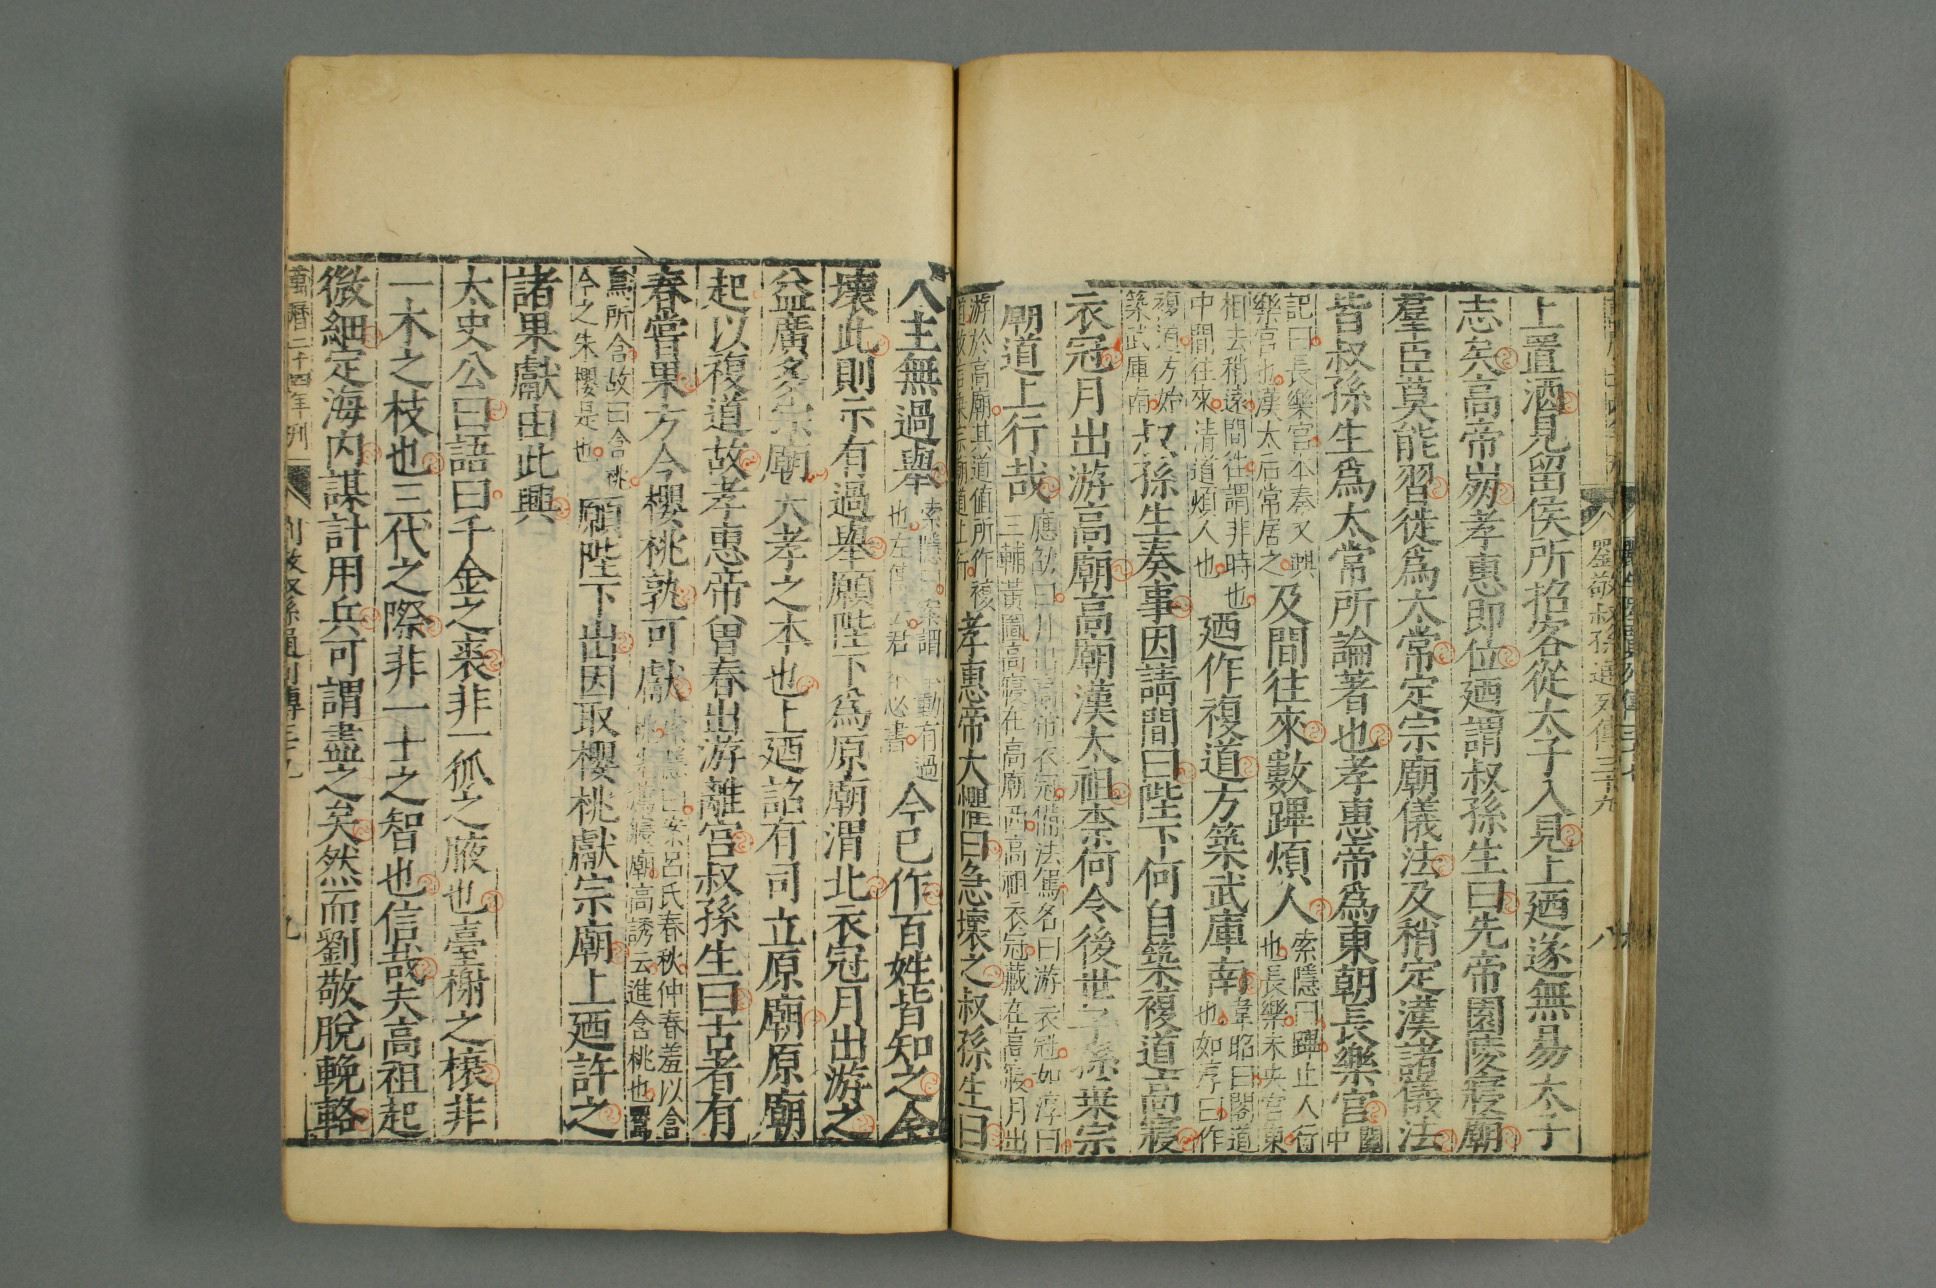 劉敬叔孫通列傳三十九 八
上置酒見留侯所招客從太子入見上廼遂無易太子
志矣高帝崩孝惠即位廼謂叔孫生曰先帝園陵寢廟
羣臣莫能習徙爲太常定宗廟儀法及稍定漢諸儀法
皆叔孫生爲太常所論著也孝惠帝爲東朝長樂宮關中
記曰長樂宮本秦之興
樂宮也漢太后常居之
及間往來數蹕煩人
索隱曰蹕止人行
也長樂未央宮東
相去稍遠間往謂非時也
中間往來清道煩人也
廼作複道方築武庫南
韋昭曰閣道
也如淳曰作
複道方始
築武庫南
叔孫生奏事因請間曰陛下何自築複道高寢
衣冠月出游高廟高廟漢太祖柰何令後世子孫乗宗
廟道上行哉
應劭曰月出高帝衣冠備法駕名曰游衣冠如淳曰
三輔黃圖高寢在高廟西高祖衣冠藏在高寢月出
游於高廟其道值所作複
道故言乗宗廟道上行
孝惠帝大懼曰急壞之叔孫生曰
人主無過舉
索隱曰案謂舉動有過
也左傳云君舉必書
今已作百姓皆知之今
壞此則示有過舉願陛下爲原廟渭北衣冠月出游之
益廣多宗廟大孝之本也上廼詔有司立原廟原廟
起以複道故孝惠帝曾春出游離宮叔孫生曰古者有
春嘗果方今櫻桃孰可獻
索隱曰案呂氏春秋仲春羞以含
桃先薦寢廟高誘云進含桃也鸎
鳥所含故曰含桃
今之朱櫻是也
願陛下出因取櫻桃獻宗廟上廼許之
諸果獻由此興
太史公曰語曰千金之裘非一狐之腋也臺榭之榱非
一木之枝也三代之際非一士之智也信哉夫高祖起
微細定海内謀計用兵可謂盡之矣然而劉敬脫輓輅
萬曆二十四年刊 劉敬叔孫通列傳三十九 九